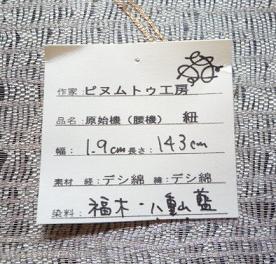 作家:ピヌムトゥ工房
品名:原始機(腰機) 紐
幅:1.9cm長さ:143cm
素材 経:デシ綿 緯:デシ綿
染料:福木・八重山藍